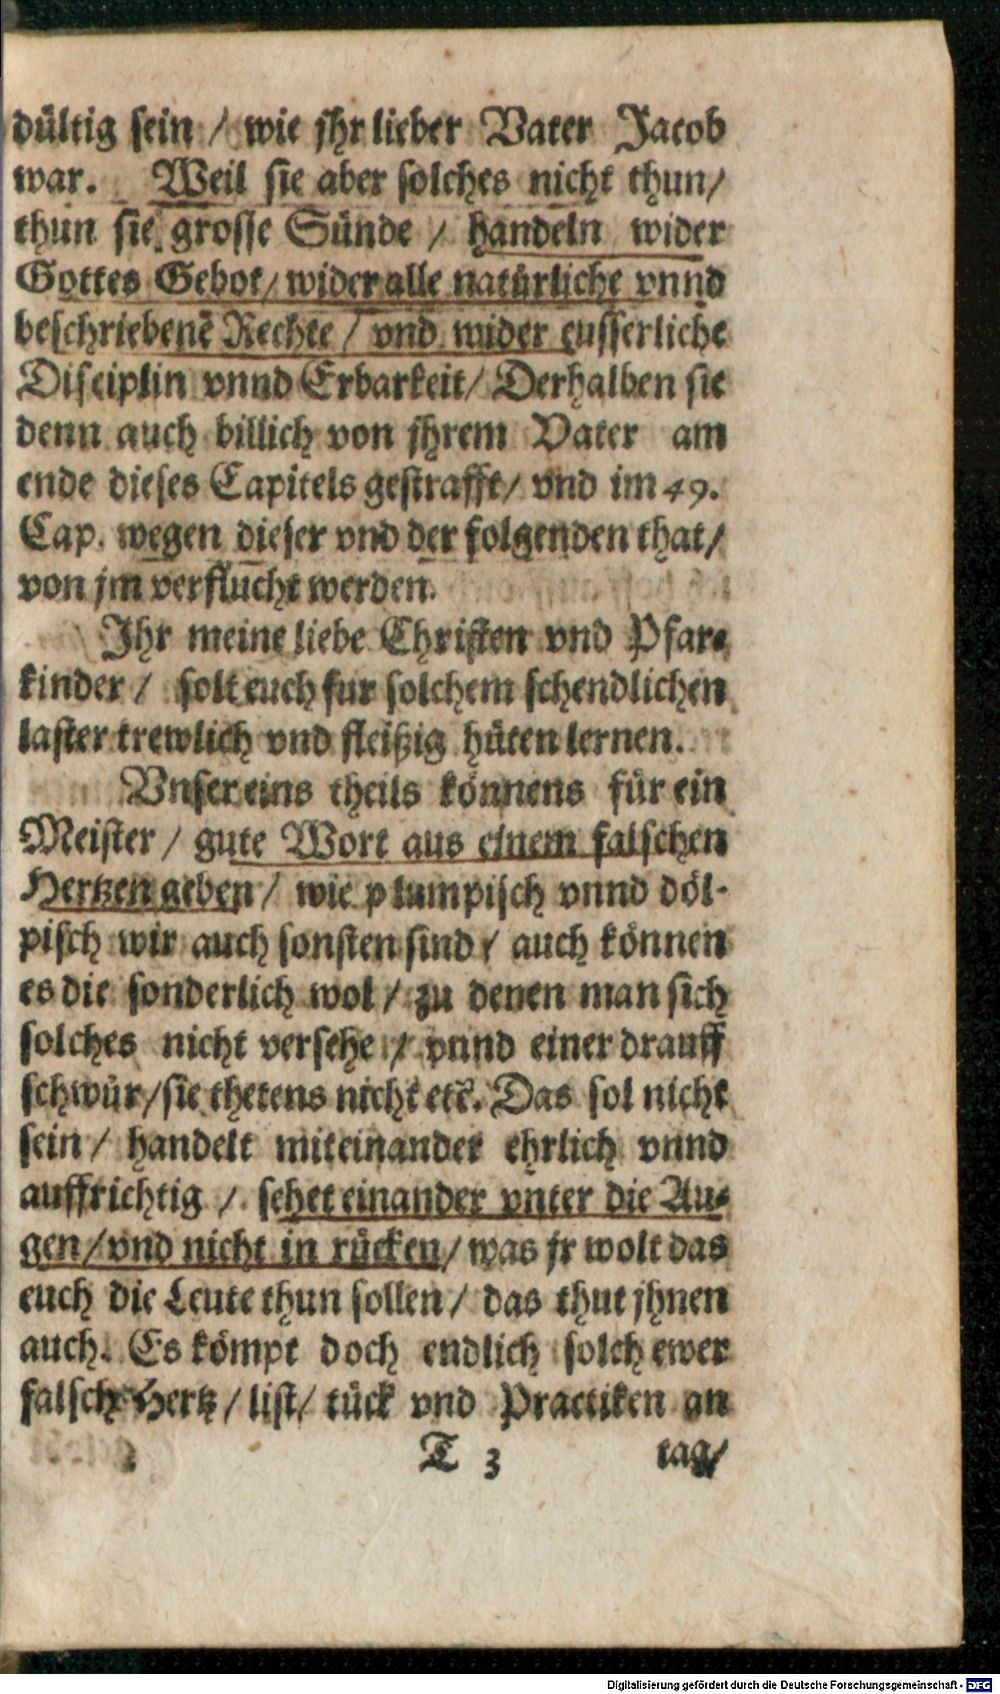 dültig sein / wie jhr lieber Vater Jacob
war. Weil sie aber solches nicht thun/
thun sie grosse Sünde / handeln wider
Gottes Gebot/ wider alle natürliche vnnd
beschriebenē Rechte / vnd wider eusserliche
Disciplin vnnd Erbarkeit/ Derhalben sie
denn auch billich von jhrem Vater am
ende dieses Capitels gestrafft/ vnd im 49.
Cap. wegen dieser vnd der folgenden that/
von jm verflucht werden.
Ihr meine liebe Christen vnd Pfar-
kinder / solt euch fur solchem schendlichen
laster trewlich vnd fleißig hüten lernen.
Vnser eins theils könnens für ein
Meister / gute Wort aus einem falschen
Hertzen geben / wie plumpisch vnnd döl-
pisch wir auch sonsten sind / auch können
es die sonderlich wol / zu denen man sich
solches nicht versehe / vnnd einer drauff
schwür/sie thetens nicht etc̄. Das sol nicht
sein / handelt miteinander ehrlich vnnd
auffrichtig / sehet einander vnter die Au-
gen/vnd nicht in rücken/ was jr wolt das
euch die Leute thun sollen / das thut jhnen
auch. Es kömpt doch endlich solch ewer
falsch Hertz / list/ tück vnd Practiken an
T 3 tag/
Digitalisierung gefördert durch die Deutsche Forschungsgemeinschaft - DFG